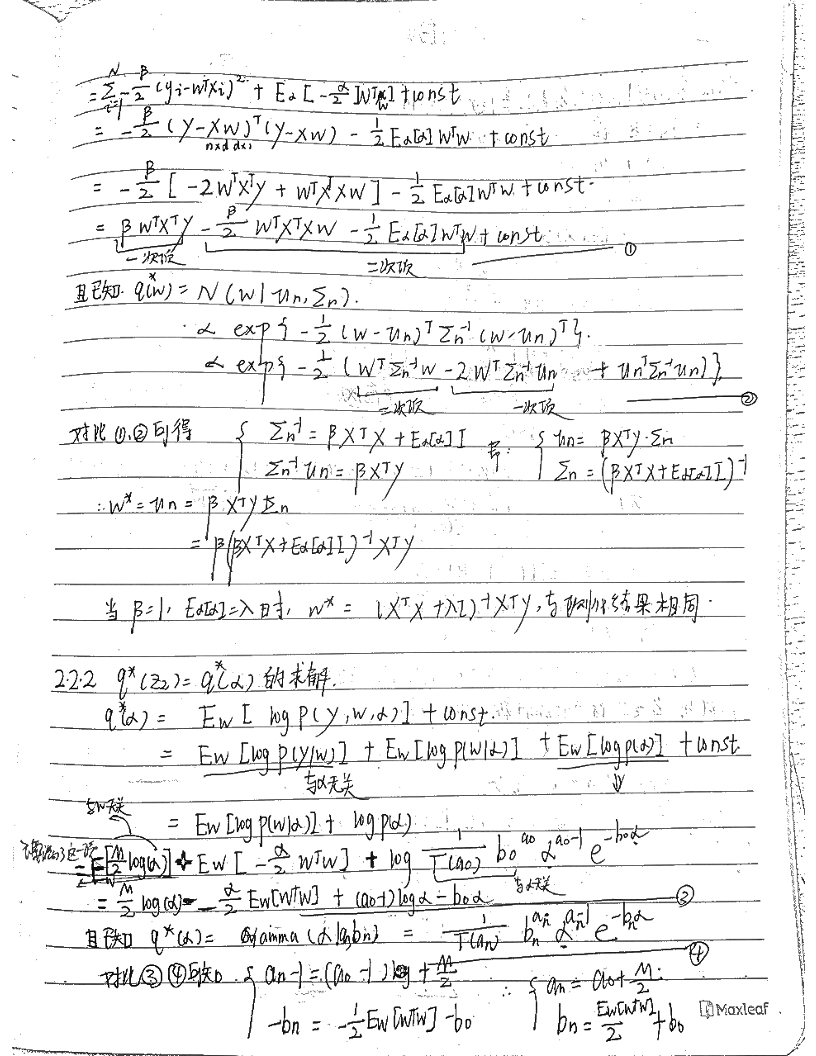 = Σ_{i=1}^{N} -β/2 (yi - wᵀxi)² + Eα[-α/2 wᵀw] + const
= -β/2 (Y - Xw)ᵀ(Y - Xw) - 1/2 Eα[α] wᵀw + const
n×d d×1
= -β/2 [-2wᵀXᵀY + wᵀXᵀXw] - 1/2 Eα[α] wᵀw + const.
= β wᵀXᵀY - β/2 wᵀXᵀXw - 1/2 Eα[α] wᵀw + const
一次项 二次项 ①
且已知. q*(w) = N(w|un, Σn).
∝ exp{-1/2 (w-un)ᵀ Σn⁻¹ (w-un)ᵀ}.
∝ exp{-1/2 (wᵀΣn⁻¹w - 2wᵀΣn⁻¹un + unᵀΣn⁻¹un)}
二次项 一次项 ②
对比①、②可得 { Σn⁻¹ = βXᵀX + Eα[α]I { un = βXᵀY·Σn
Σn⁻¹un = βXᵀY Σn = (βXᵀX + Eα[α]I)⁻¹
∴ w* = un = βXᵀYΣn
= β(βXᵀX + Eα[α]I)⁻¹XᵀY
当 β=1, Eα[α]=λ时, w* = (XᵀX + λI)⁻¹XᵀY, 与 结果相同.
2.2.2 q*(z2) = q*(α) 的求解.
q*(α) = Ew[log P(Y,w,α)] + const.
= Ew[log P(Y|w)] + Ew[log P(w|α)] + Ew[log p(α)] + const
与α无关 ⇓
= Ew[log p(w|α)] + log p(α)
与w无关
= E[M/2 log(α)] + Ew[-α/2 wᵀw] + log 1/Γ(a0) b0^a0 α^(a0-1) e^(-b0α)
w 与α无关
= M/2 log(α) - -α/2 Ew[wᵀw] + (a0-1)logα - b0α ③
且已知 q*(α) = Gamma(α|an,bn) = 1/Γ(an) bn^an α^(an-1) e^(-bnα)
④
对比③④可知 { an-1 = (a0-1) + M/2 ∴ { an = a0 + M/2
-bn = -1/2 Ew[wᵀw] - b0 bn = Ew[wᵀw]/2 + b0
Maxleaf